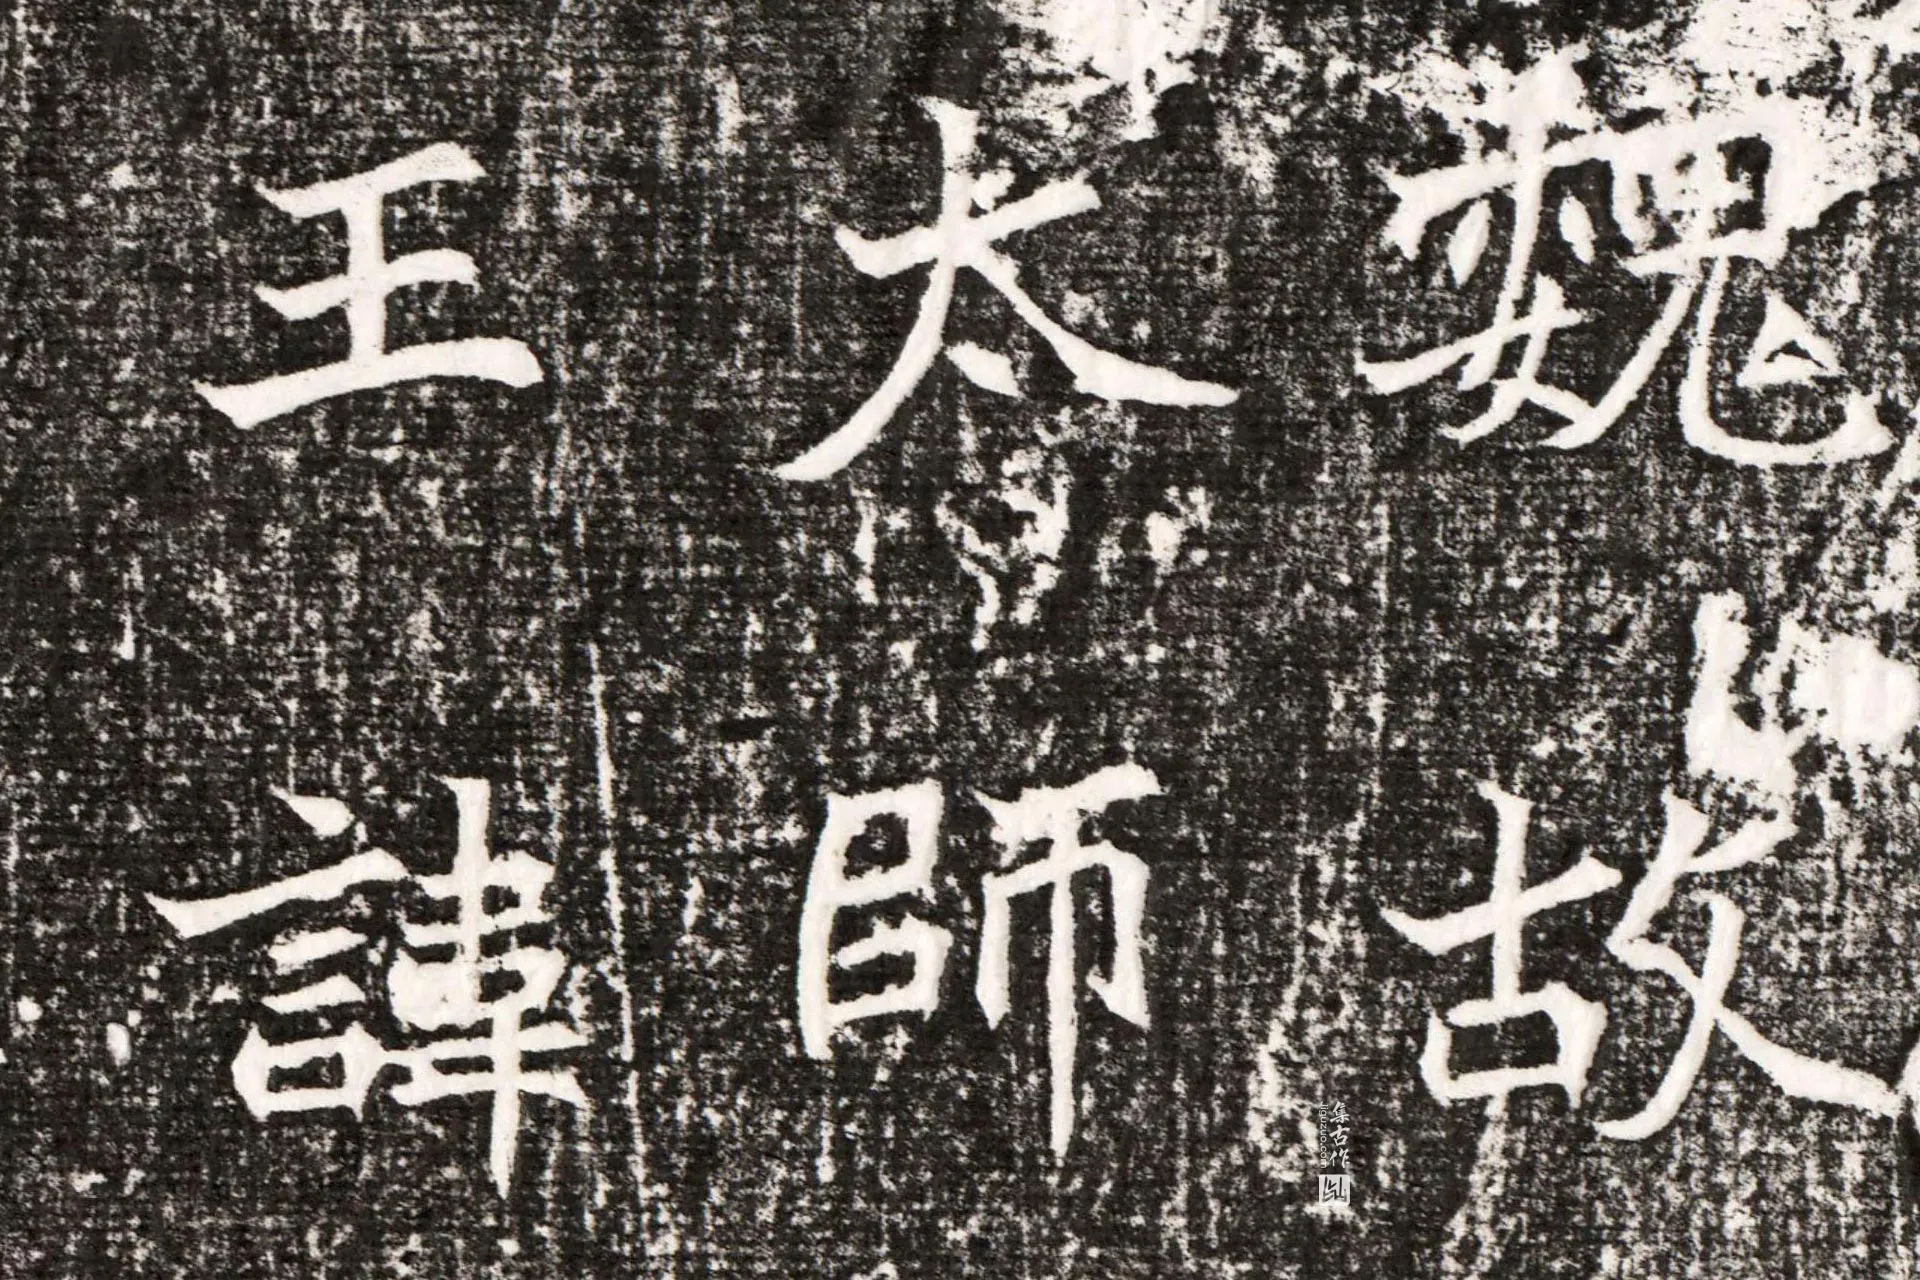 魏故
太師
王諱
集古作
jiguzuo.com